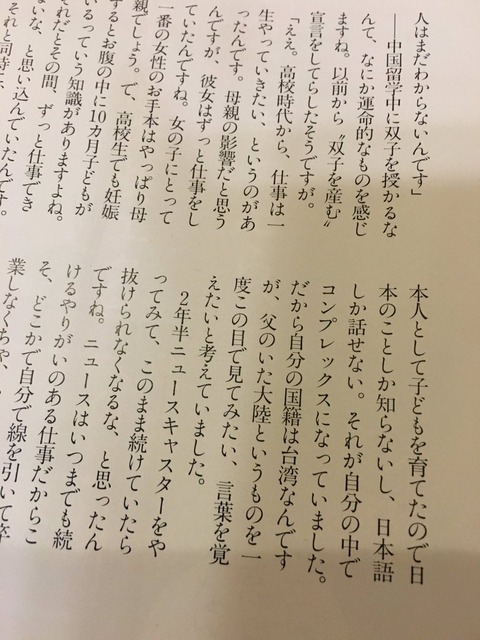 人はまだわからないんです」
――中国留学中に双子を授かるな
んて、なにか運命的なものを感じ
ますね。以前から〝双子を産む〟
宣言をしてらしたそうですが。
「ええ。高校時代から、仕事は一
生やっていきたい、というのがあ
ったんです。母親の影響だと思う
んですが、彼女はずっと仕事をし
ていたんですね。女の子にとって
一番の女性のお手本はやっぱり母
親でしょう。で、高校生でも妊娠
するとお腹の中に10カ月子どもが
いるっていう知識がありますよね。
それだとその間、ずっと仕事でき
ないな、と思い込んでいたんです。
それと同時に、
本人として子どもを育てたので日
本のことしか知らないし、日本語
しか話せない。それが自分の中で
コンプレックスになっていました。
だから自分の国籍は台湾なんです
が、父のいた大陸というものを一
度この目で見てみたい、言葉を覚
えたいと考えていました。
2年半ニュースキャスターをや
ってみて、このまま続けていたら
抜けられなくなるな、と思ったん
ですね。ニュースはいつまでも続
けるやりがいのある仕事だからこ
そ、どこかで自分で線を引いて卒
業しなくちゃ、